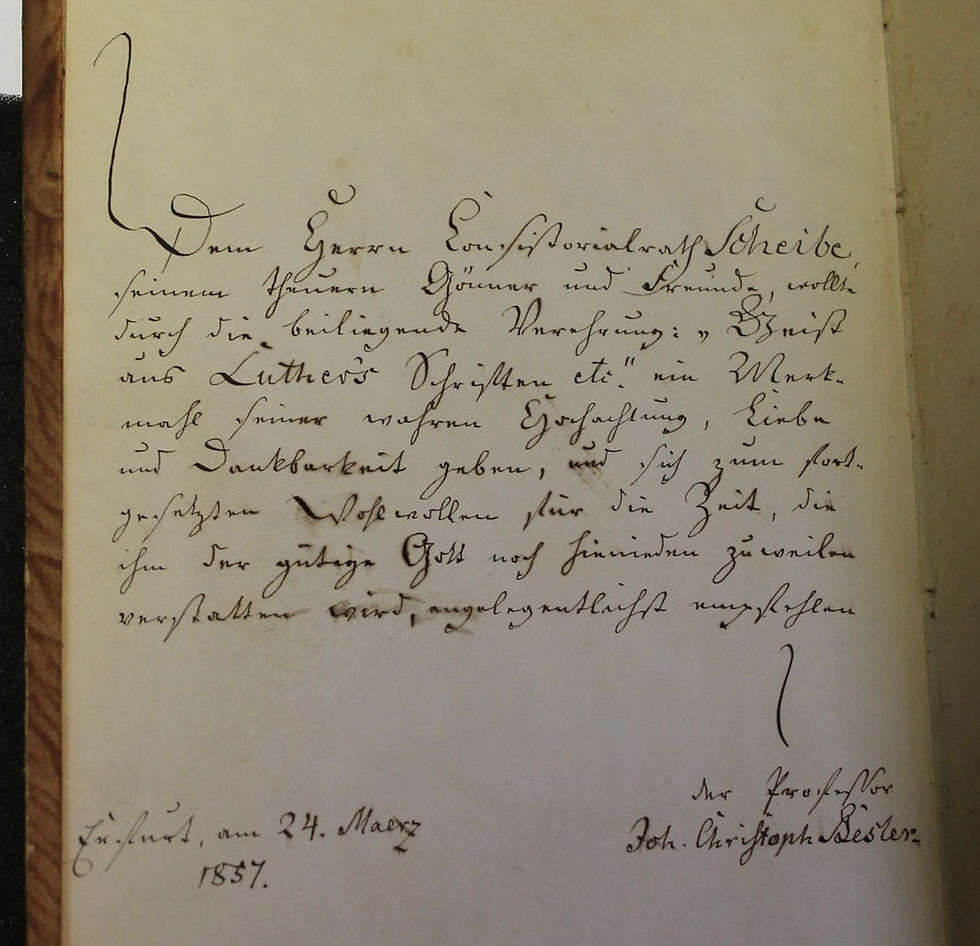 Dem Herrn Consistorialrath Scheibe,
seinem theuern Gönner und Freunde, wollte
durch die beiliegende Verehrung: „Geist
aus Luther's Schriften etc." ein Merk-
mahl seiner wahren Hochachtung, Liebe
und Dankbarkeit geben, und sich zum fort-
gesetzten Wohlwollen für die Zeit, die
ihm der gütige Gott noch hienieden zuweilen
verstatten wird, angelegentlichst empfehlen
der Professor
Joh. Christoph Besler.
Erfurt, am 24. Maerz
1857.